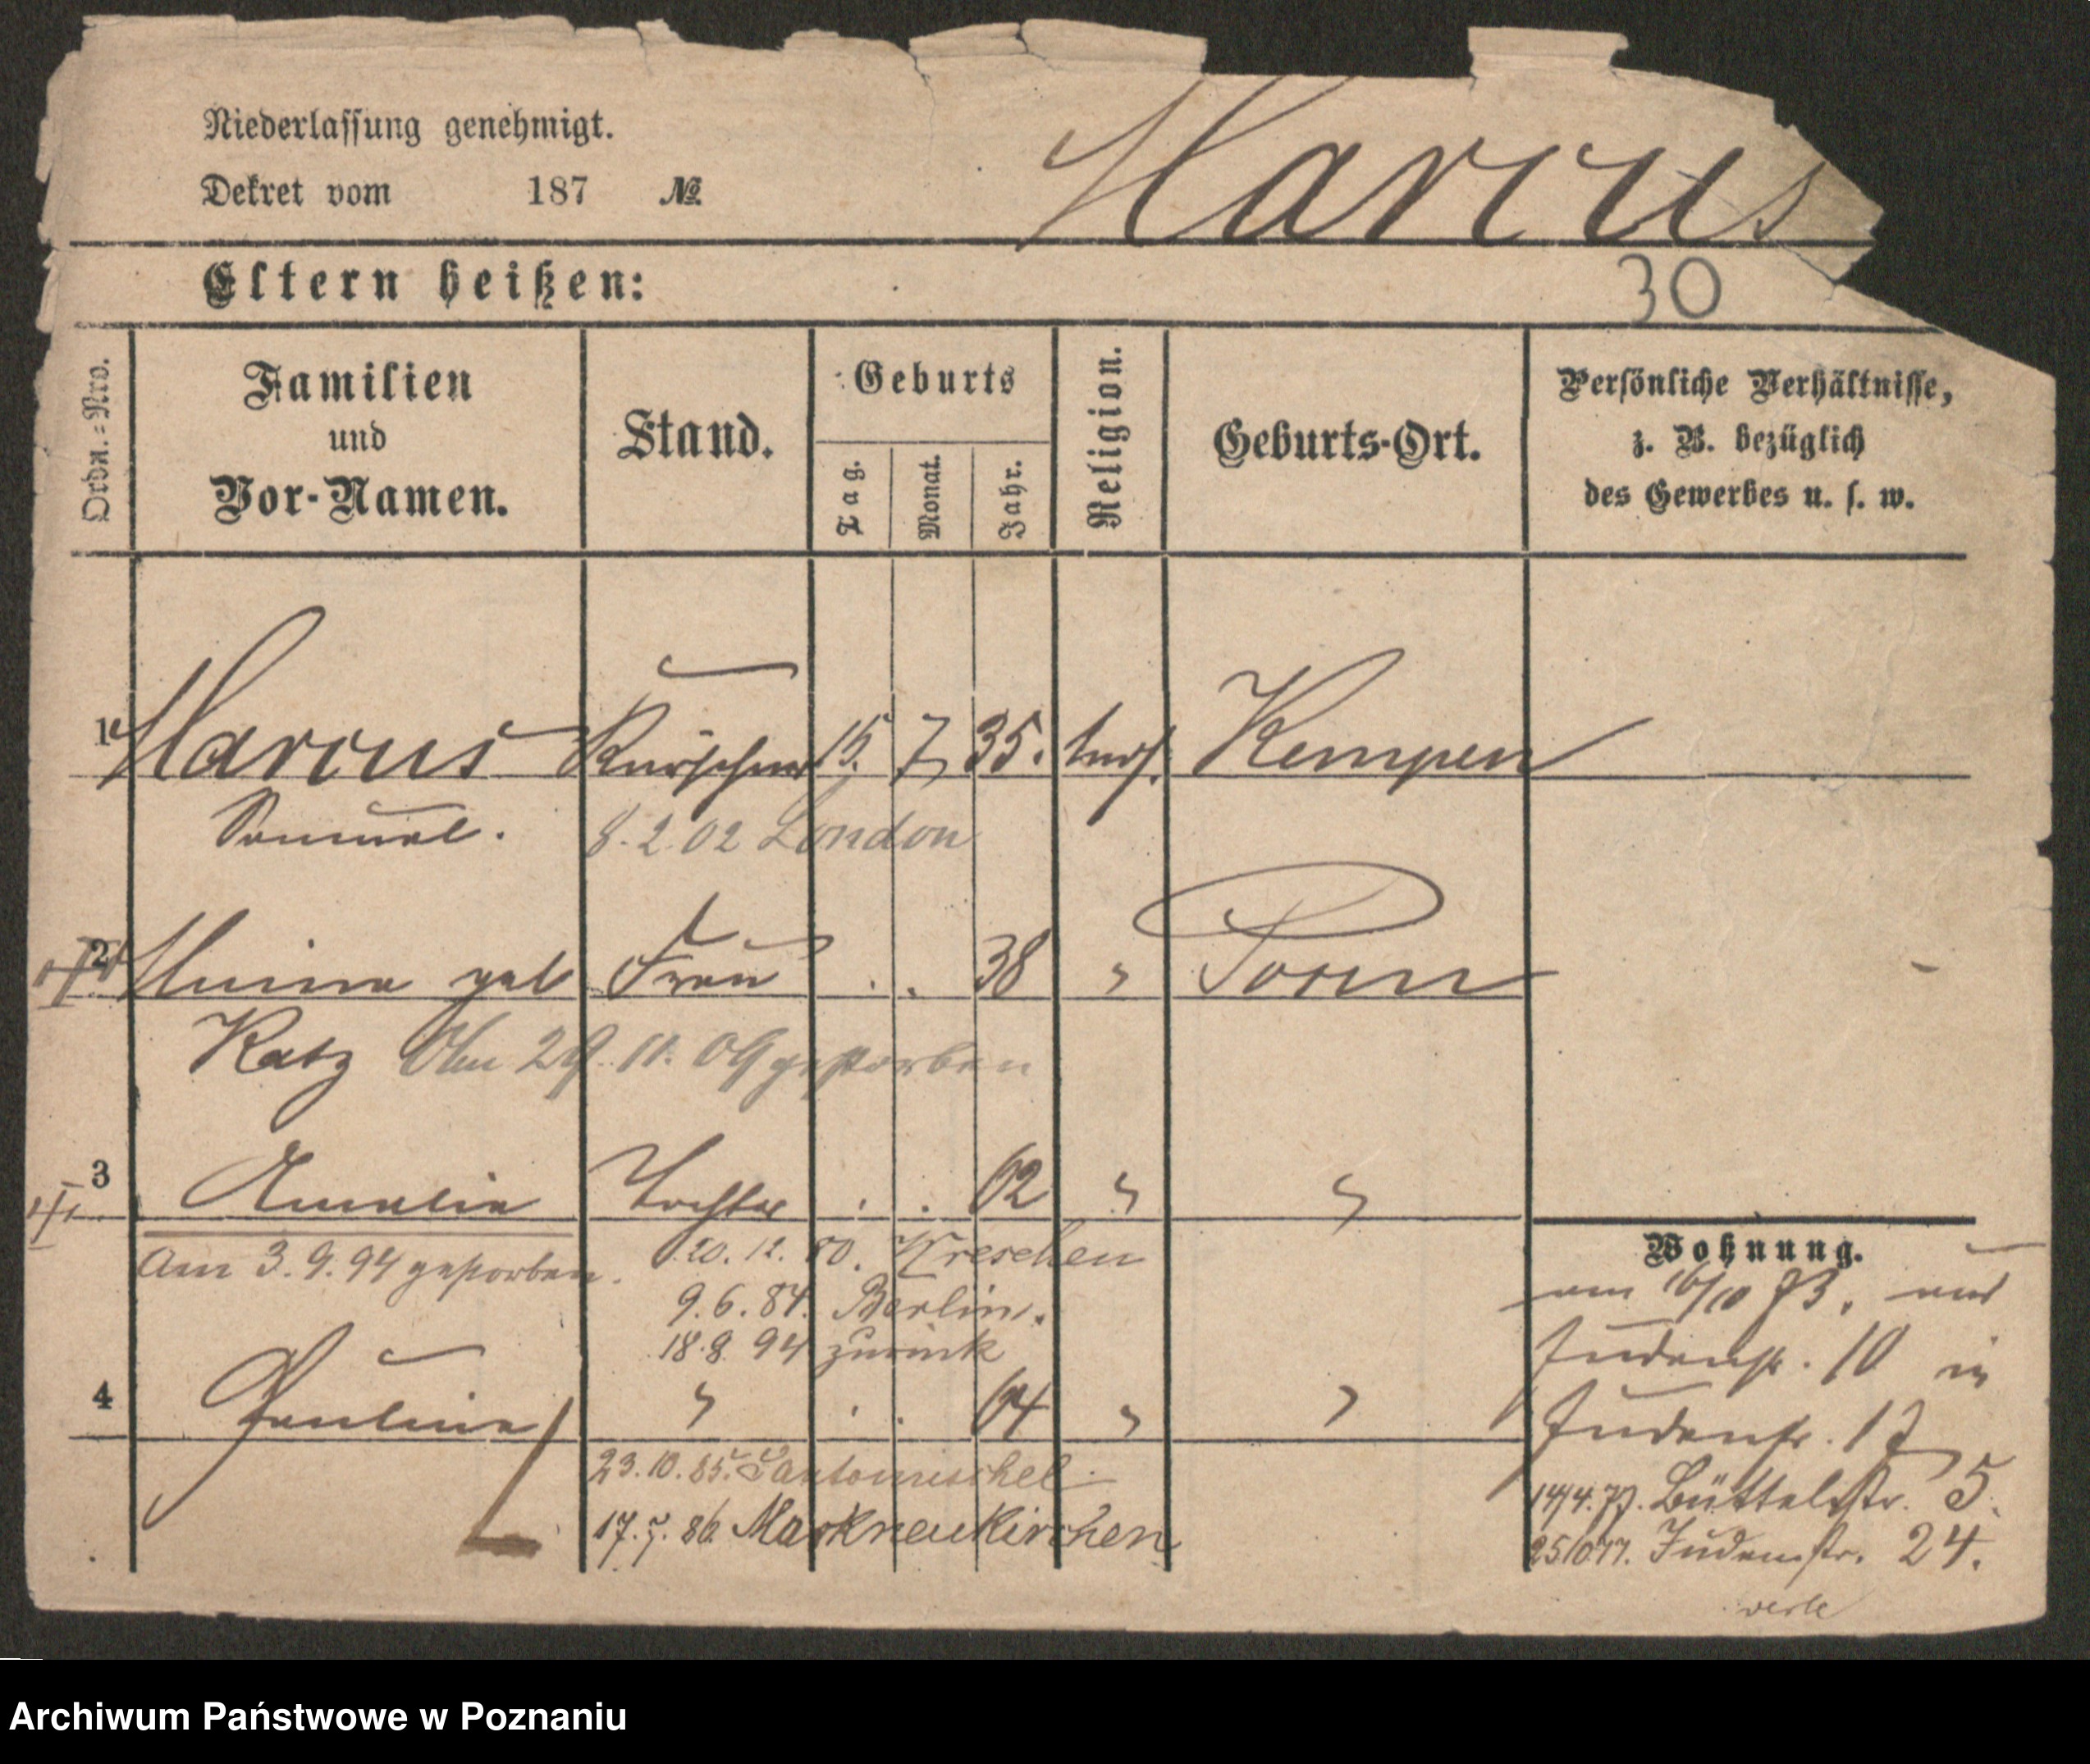 Niederlassung genehmigt.
Dekret vom 187 №
Marcus
Eltern heißen:
30
Ordn.=Nro.
Familien
und
Vor-Namen.
Stand.
Geburts
Tag.
Monat.
Jahr.
Religion.
Geburts-Ort.
Persönliche Verhältnisse,
z. B. bezüglich
des Gewerbes u. s. w.
1 Marcus Kürschner 15. 7 35. mos. Kempen
Samuel. 8.2.02 London
2 Minna geb Frau . . 38 " Posen
Katz Am 29. 11. 09 gestorben
3 Amalie Tochter . . 62 " "
Am 3.9.94 gestorben. 20. 12. 80. Wreschen
9. 6. 84. Berlin.
18.8 94 zurück
4 Pauline " . . 64 " "
23.10.85. Santomischel
17. 7. 86. Markneukirchen
Wohnung.
am 16/10 73. aus
Judenstr. 10 in
Judenstr. 17
14/4.77. Büttelstr. 5.
25/10 77. Judenstr. 24.
verte
Archiwum Państwowe w Poznaniu